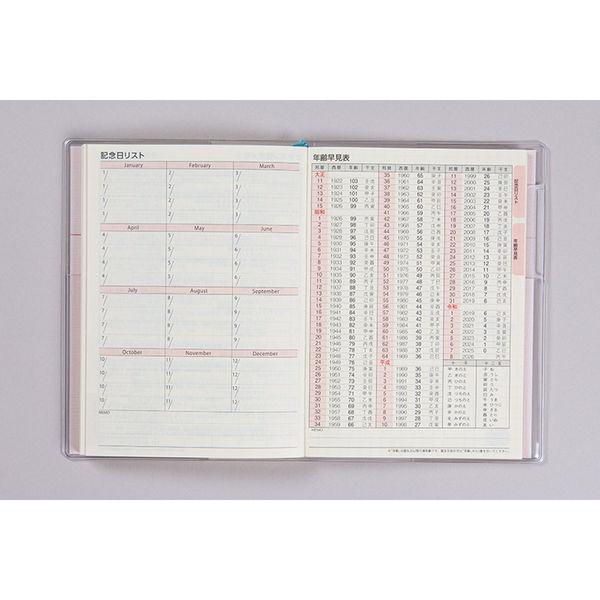 記念日リスト
January February March
1/ 4/ 6/
1/ 4/ 6/
April May June
July August September
7/ 8/ 9/
7/ 8/ 9/
7/ 8/ 9/
7/ 8/ 9/
October November December
10/ 11/ 12/
10/ 11/ 12/
10/ 11/ 12/
10/ 11/ 12/
MEMO
年齢早見表
和暦 西暦 年齢 干支
大正
11 1922 103 壬戌
12 1923 102 癸亥
13 1924 101 甲子
14 1925 100 乙丑
15 1926 99 丙寅
昭和
1 1926 99 丙寅
2 1927 98 丁卯
3 1928 97 戊辰
4 1929 96 己巳
5 1930 95 庚午
6 1931 94 辛未
7 1932 93 壬申
8 1933 92 癸酉
9 1934 91 甲戌
10 1935 90 乙亥
11 1936 89 丙子
12 1937 88 丁丑
13 1938 87 戊寅
14 1939 86 己卯
15 1940 85 庚辰
16 1941 84 辛巳
17 1942 83 壬午
18 1943 82 癸未
19 1944 81 甲申
20 1945 80 乙酉
21 1946 79 丙戌
22 1947 78 丁亥
23 1948 77 戊子
24 1949 76 己丑
25 1950 75 庚寅
26 1951 74 辛卯
27 1952 73 壬辰
28 1953 72 癸巳
29 1954 71 甲午
30 1955 70 乙未
31 1956 69 丙申
32 1957 68 丁酉
33 1958 67 戊戌
34 1959 66 己亥
和暦 西暦 年齢 干支
35 1960 65 庚子
36 1961 64 辛丑
37 1962 63 壬寅
38 1963 62 癸卯
39 1964 61 甲辰
40 1965 60 乙巳
41 1966 59 丙午
42 1967 58 丁未
43 1968 57 戊申
44 1969 56 己酉
45 1970 55 庚戌
46 1971 54 辛亥
47 1972 53 壬子
48 1973 52 癸丑
49 1974 51 甲寅
50 1975 50 乙卯
51 1976 49 丙辰
52 1977 48 丁巳
53 1978 47 戊午
54 1979 46 己未
55 1980 45 庚申
56 1981 44 辛酉
57 1982 43 壬戌
58 1983 42 癸亥
59 1984 41 甲子
60 1985 40 乙丑
61 1986 39 丙寅
62 1987 38 丁卯
63 1988 37 戊辰
64 1989 36 己巳
平成
1 1989 36 己巳
2 1990 35 庚午
3 1991 34 辛未
4 1992 33 壬申
5 1993 32 癸酉
6 1994 31 甲戌
7 1995 30 乙亥
8 1996 29 丙子
9 1997 28 丁丑
10 1998 27 戊寅
和暦 西暦 年齢 干支
11 1999 26 己卯
12 2000 25 庚辰
13 2001 24 辛巳
14 2002 23 壬午
15 2003 22 癸未
16 2004 21 甲申
17 2005 20 乙酉
18 2006 19 丙戌
19 2007 18 丁亥
20 2008 17 戊子
21 2009 16 己丑
22 2010 15 庚寅
23 2011 14 辛卯
24 2012 13 壬辰
25 2013 12 癸巳
26 2014 11 甲午
27 2015 10 乙未
28 2016 9 丙申
29 2017 8 丁酉
30 2018 7 戊戌
31 2019 6 己亥
令和
1 2019 6 己亥
2 2020 5 庚子
3 2021 4 辛丑
4 2022 3 壬寅
5 2023 2 癸卯
6 2024 1 甲辰
7 2025 0 乙巳
8 2026 丙午
甲 きのえ
乙 きのと
丙 ひのえ
丁 ひのと
戊 つちのえ
己 つちのと
庚 かのえ
辛 かのと
壬 みずのえ
癸 みずのと
子 ね
丑 うし
寅 とら
卯 う
辰 たつ
巳 み
午 うま
未 ひつじ
申 さる
酉 とり
戌 いぬ
亥 い
MEMO
記念日リスト
年齢早見表